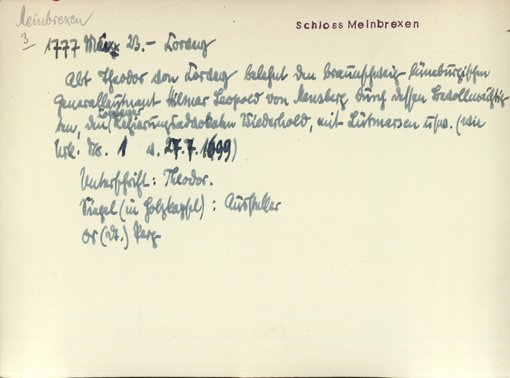 Meinbrexen
3
Schloss Meinbrexen
1777 März 23.- Corvey
Abt Theodor von Corvey belehnt den braunschweig-lüneburgischen
Generalleutnant Hilmar Leopold von Mansberg durch dessen Bevollmächtig-
ten, den Regierungsadvokaten Wiederhold, mit Lütmarsen usw. (wie
Urk. Nr. 1 v. 27.7.1699)
Unterschrift: Theodor.
Siegel (in Holzkapsel): Aussteller
Or (dt.) Perg.